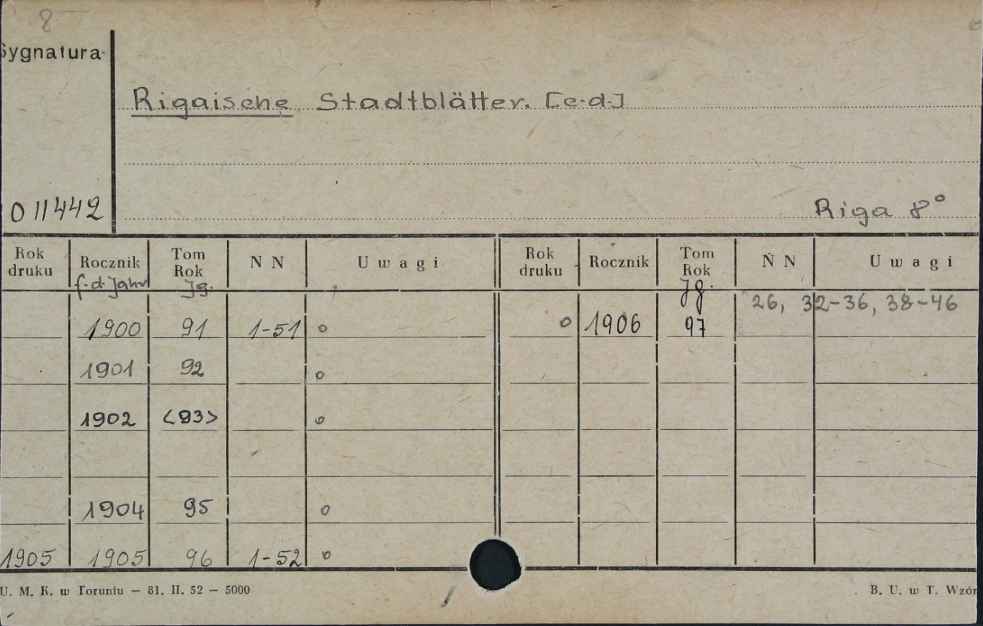 8
Sygnatura
Rigaische Stadtblätter. [c.d.]
011442
Riga 8°
Rok druku Rocznik Tom Rok N N Uwagi Rok druku Rocznik Tom Rok N N Uwagi
f. d. Jahr Jg. Jg. 26, 32-36, 38-46
1900 91 1-51 o o 1906 97
1901 92 o
1902 <93> o
1904 95 o
1905 1905 96 1-52 o
U. M. K. w Toruniu — 81. II. 52 — 5000 B. U. w T. Wzór